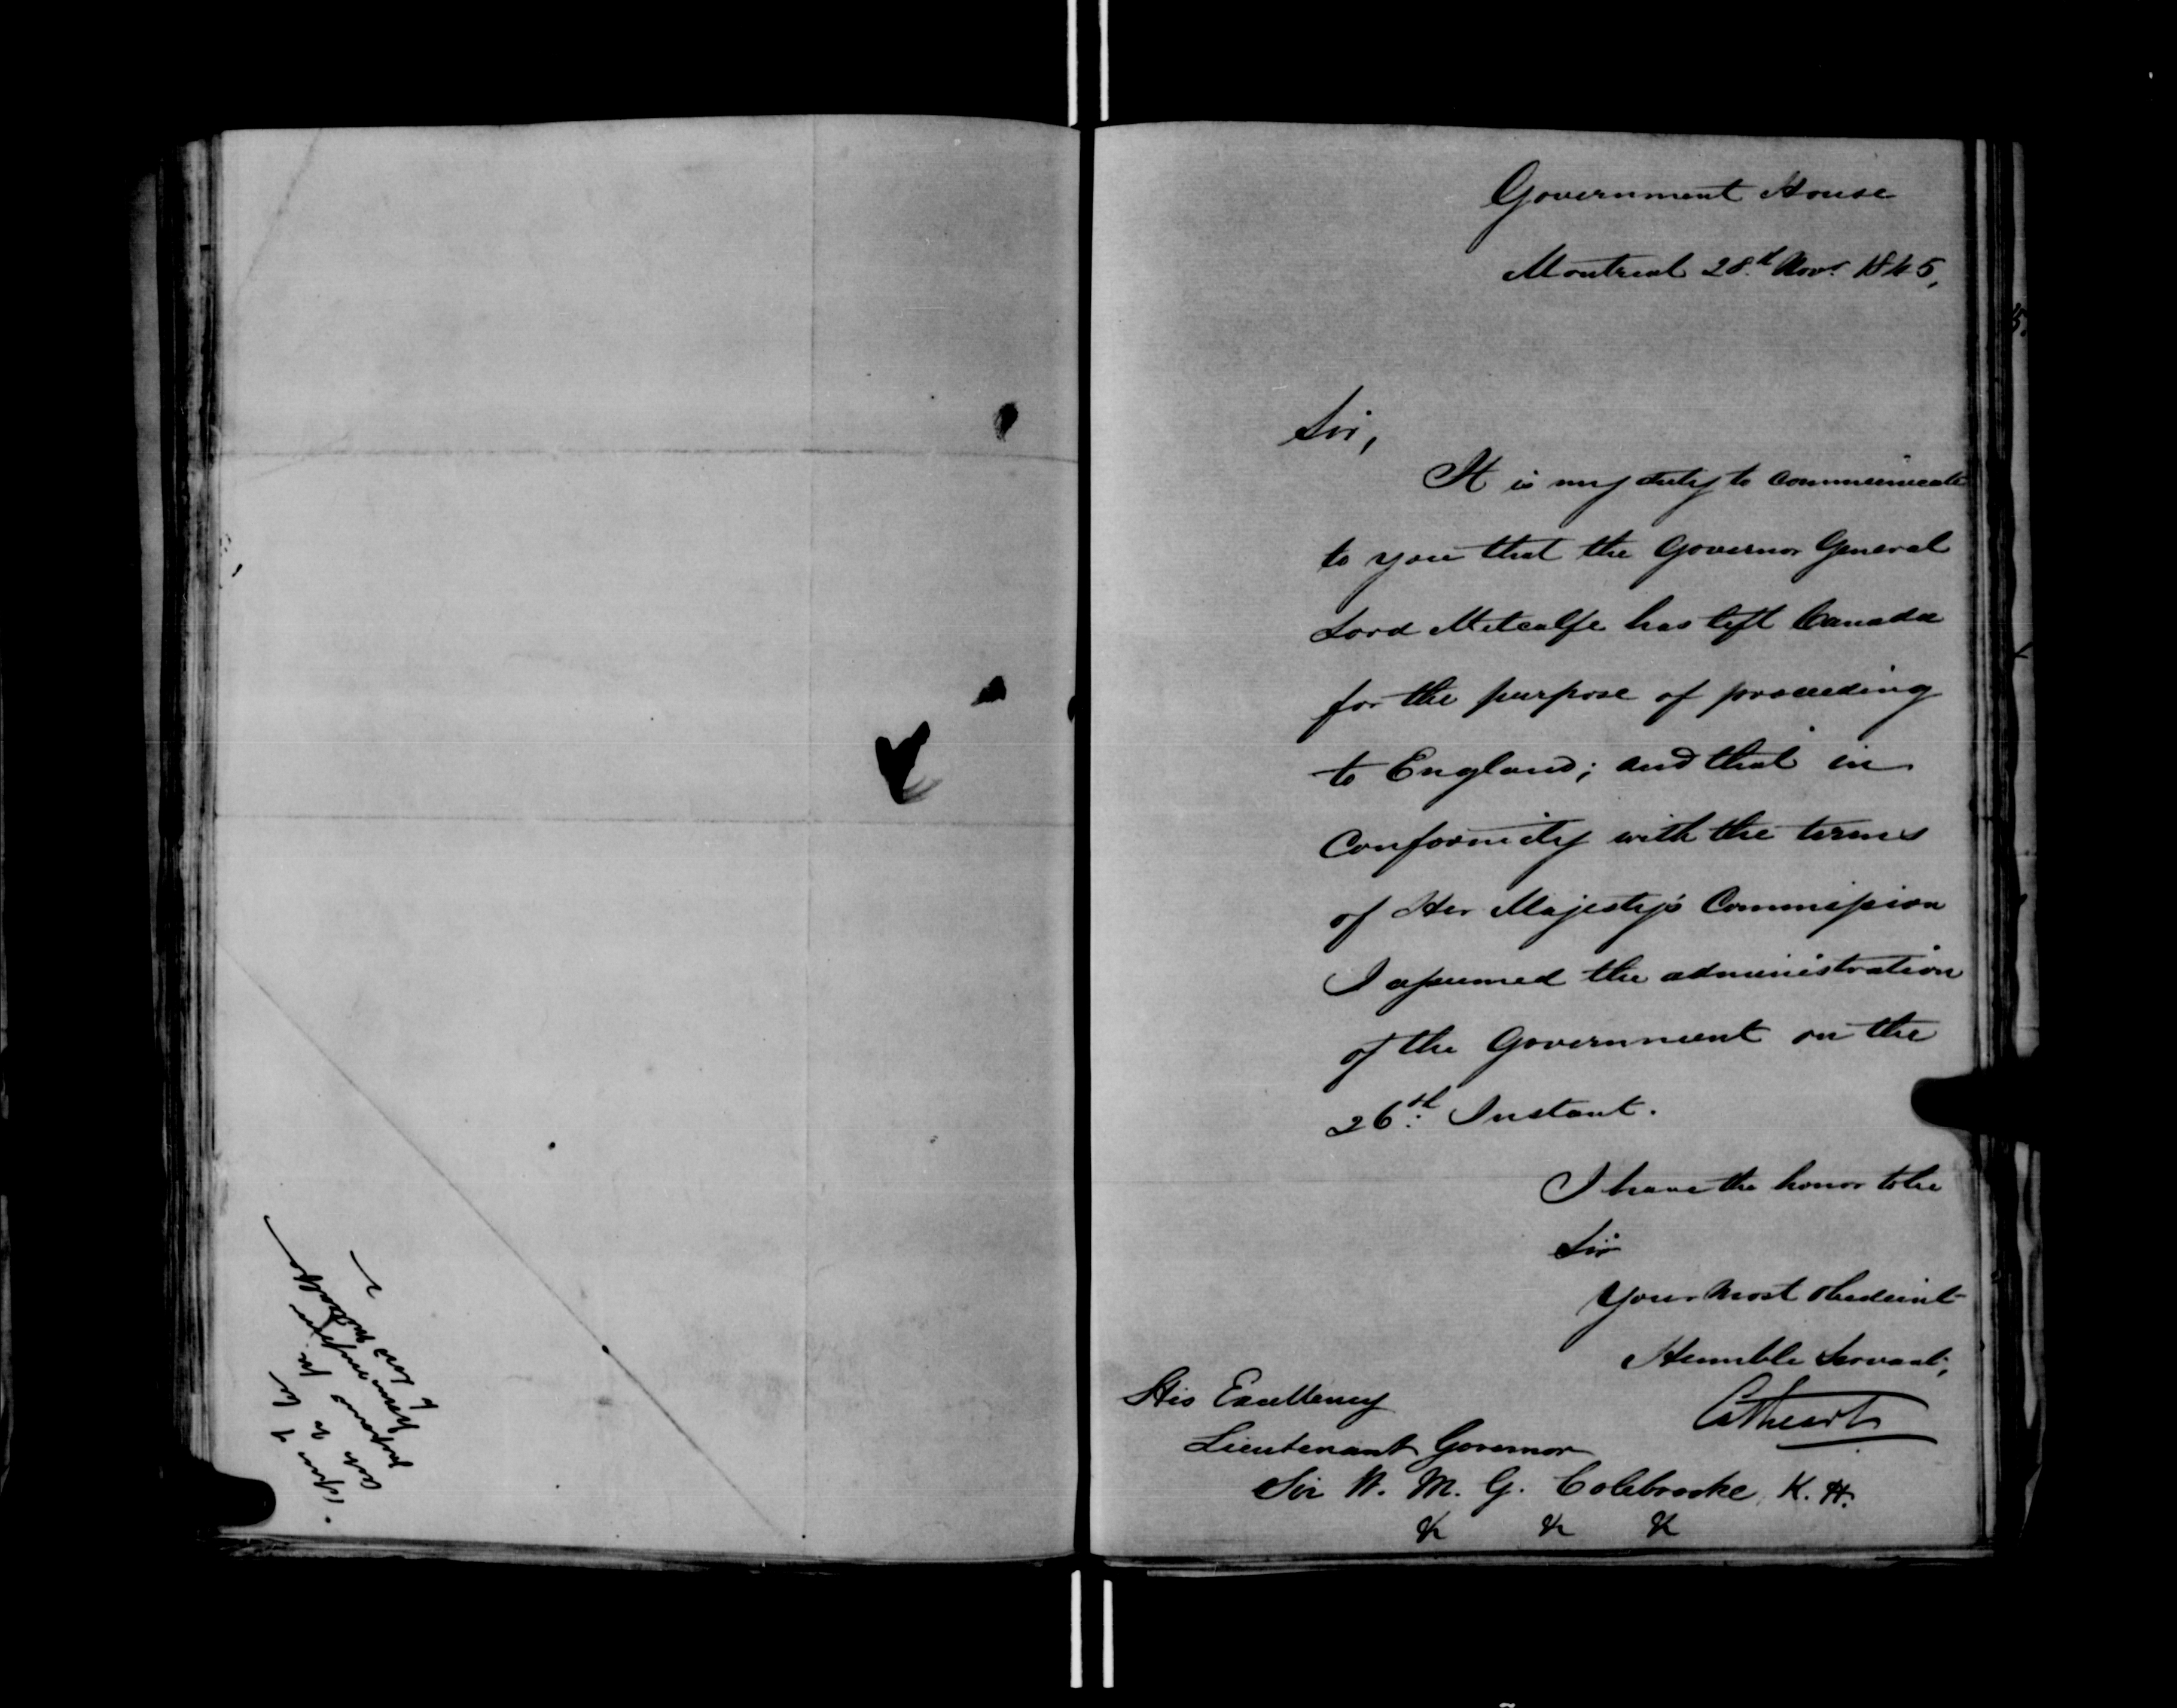 Government House
Montreal 28th Novr 1845,
Sir,
It is my duty to communicate
to you that the Governor General
Lord Metcalfe has left Canada
for the purpose of proceeding
to England; and that in
Conformity with the terms
of Her Majesty's Commission
I assumed the administration
of the Government on the
26th Instant.
I have the honor to be
Sir
Your most obedient
Humble Servant,
Cathcart
His Excellency
Lieutenant Governor
Sir W. M. G. Colebrooke, K. H.
&c &c &c